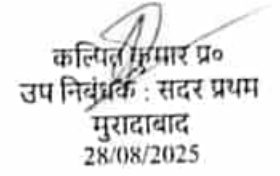 कल्पित कुमार प्र०
उप निबंधक : सदर प्रथम
मुरादाबाद
28/08/2025